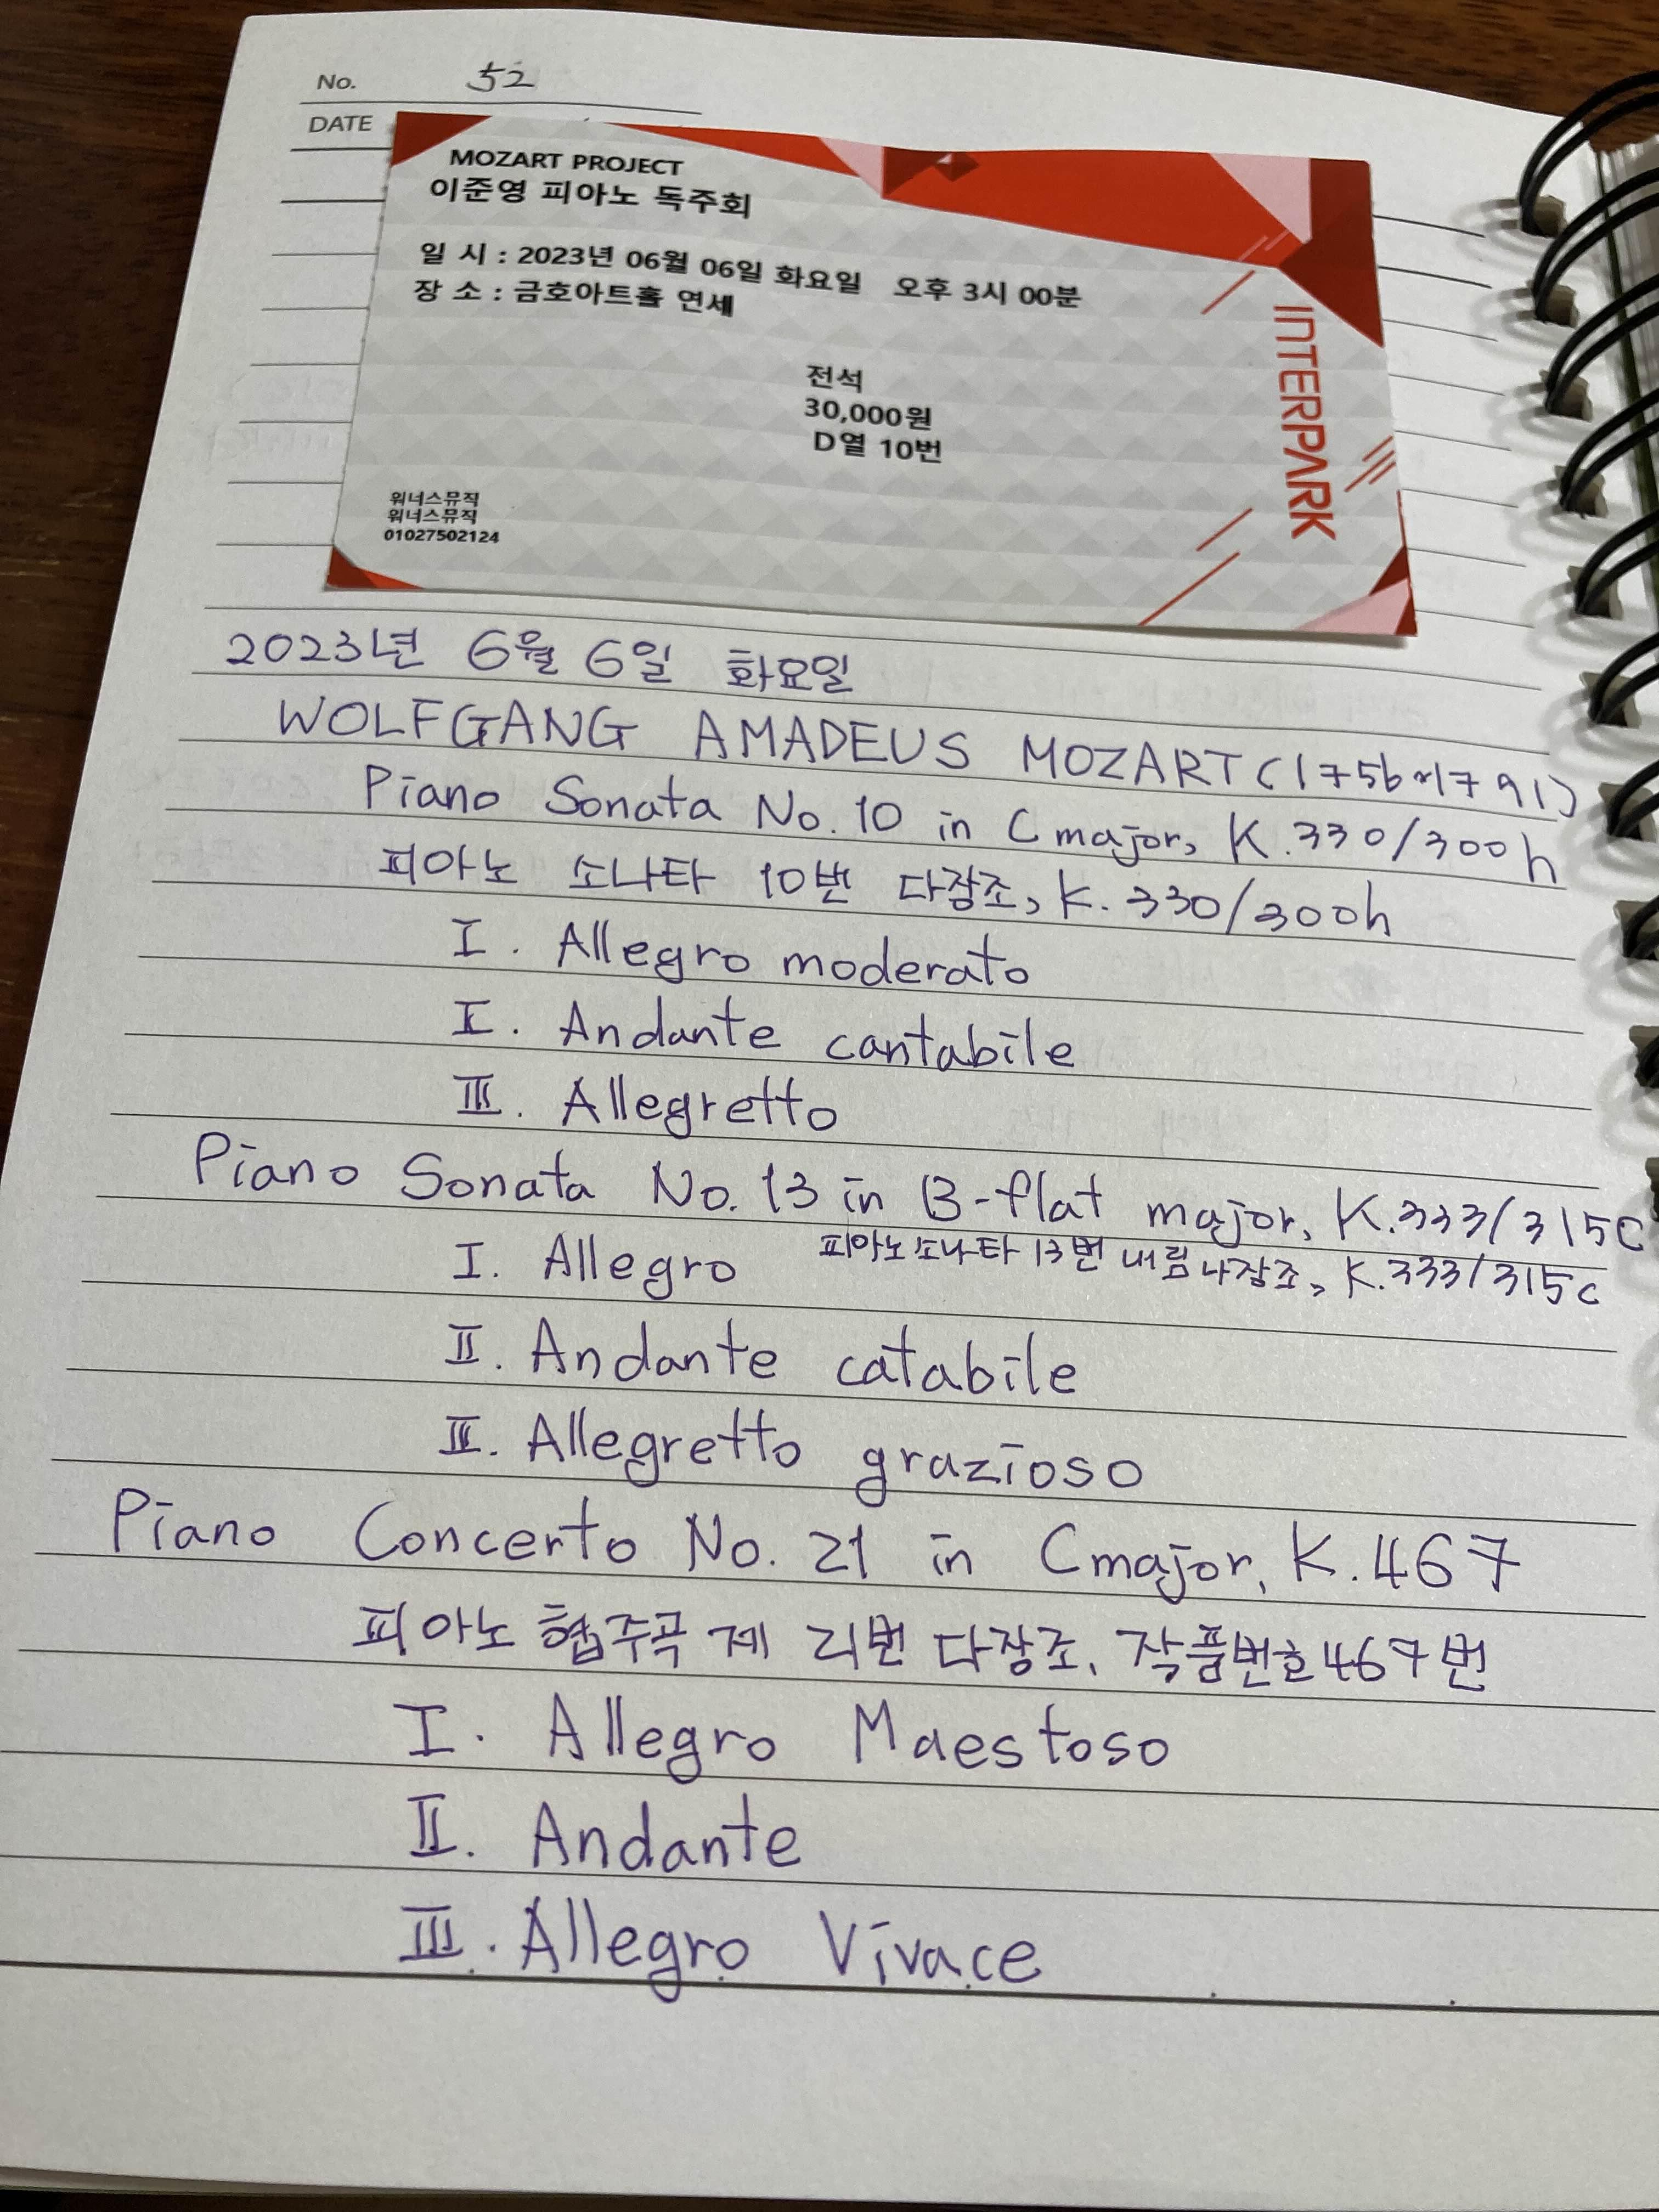 No. 52
DATE
MOZART PROJECT
이준영 피아노 독주회
일 시 : 2023년 06월 06일 화요일 오후 3시 00분
장 소 : 금호아트홀 연세
전석
30,000원
D열 10번
워너스뮤직
워너스뮤직
01027502124
INTERPARK
2023년 6월 6일 화요일
WOLFGANG AMADEUS MOZART(1756~1791)
Piano Sonata No.10 in C major, K.330/300h
피아노 소나타 10번 다장조, K.330/300h
I. Allegro moderato
I. Andante cantabile
III. Allegretto
Piano Sonata No.13 in B-flat major, K.333/315C
I. Allegro 피아노 소나타 13번 내림 나장조, K.333/315c
II. Andante catabile
III. Allegretto grazioso
Piano Concerto No. 21 in C major, K.467
피아노 협주곡 제 21번 다장조, 작품번호 467번
I. Allegro Maestoso
II. Andante
III. Allegro Vivace